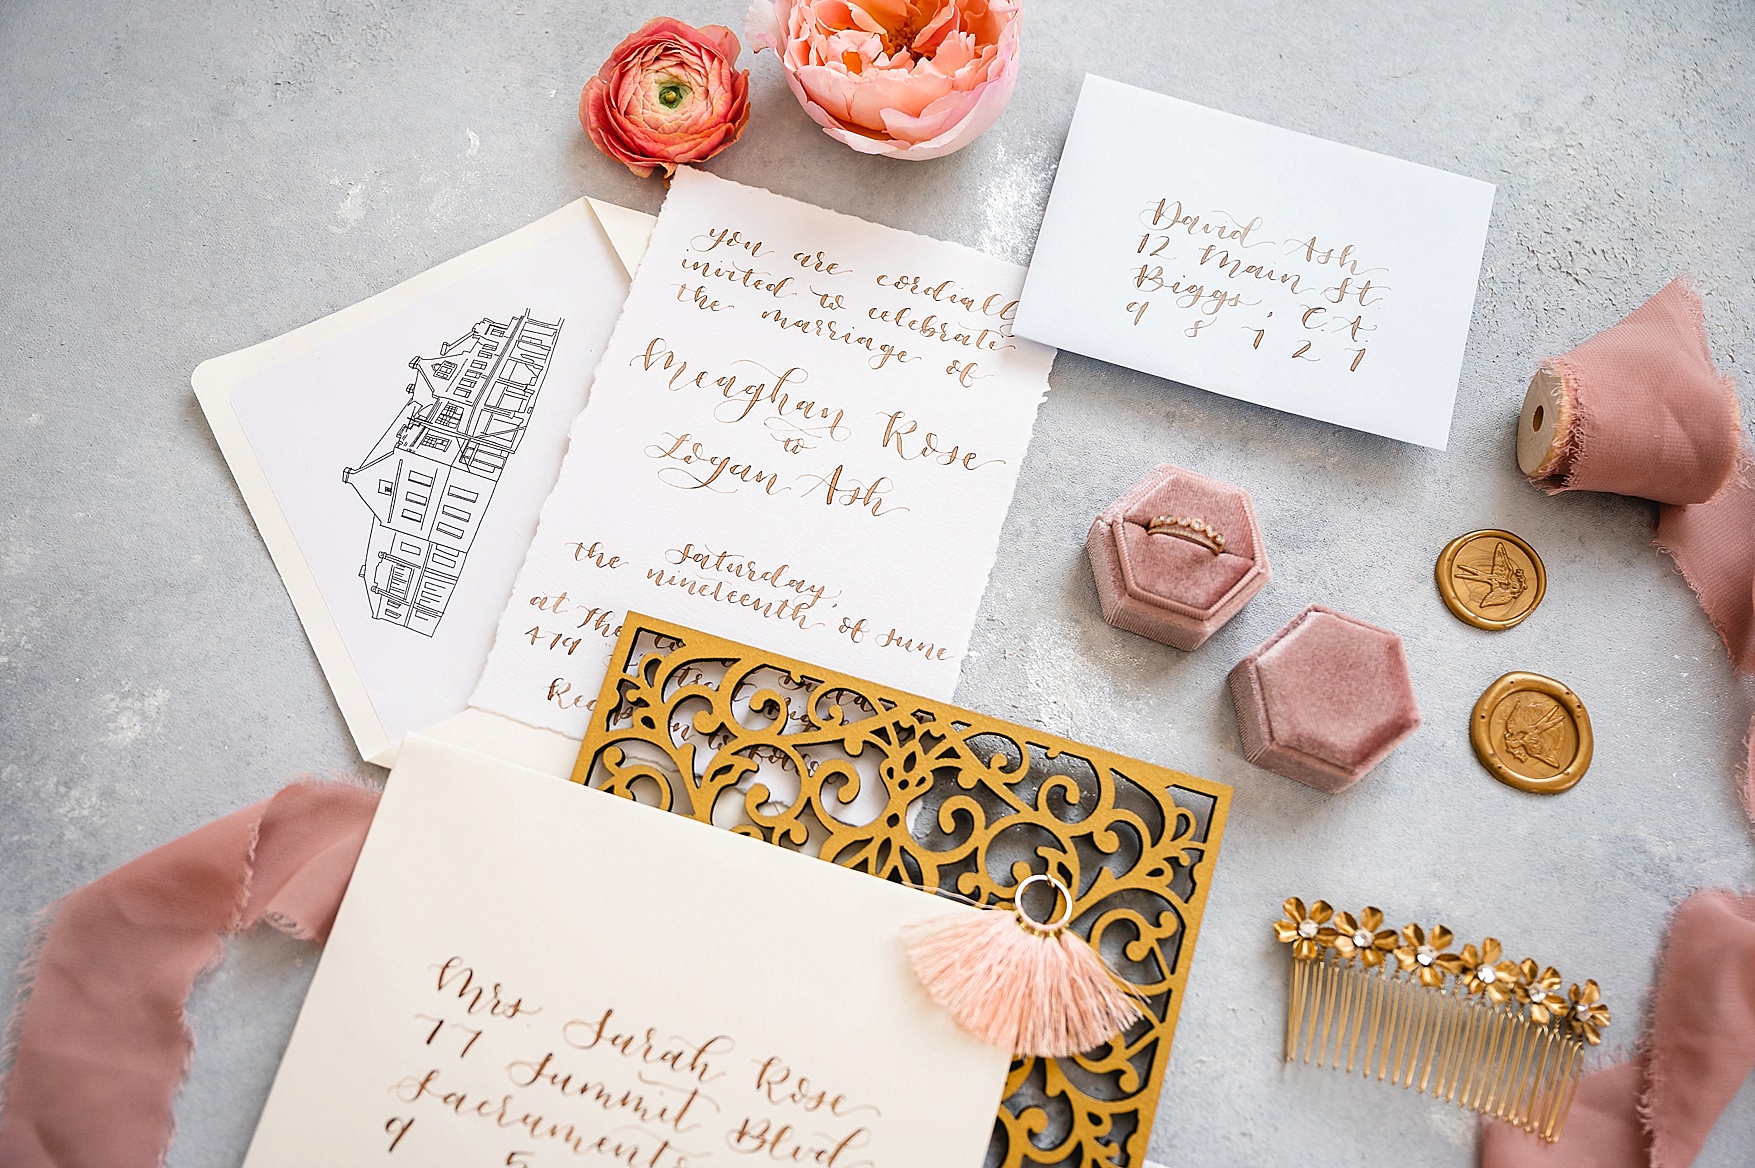 you are cordially
invited to celebrate
the marriage of
Meaghan Rose
to
Logan Ash
Saturday,
the nineteenth of June
at The
479
David Ash
12 Main St.
Biggs, C.A.
9 8 7 2 7
Mrs Surah Rose
77 Summit Blvd
Sacramento
9 5